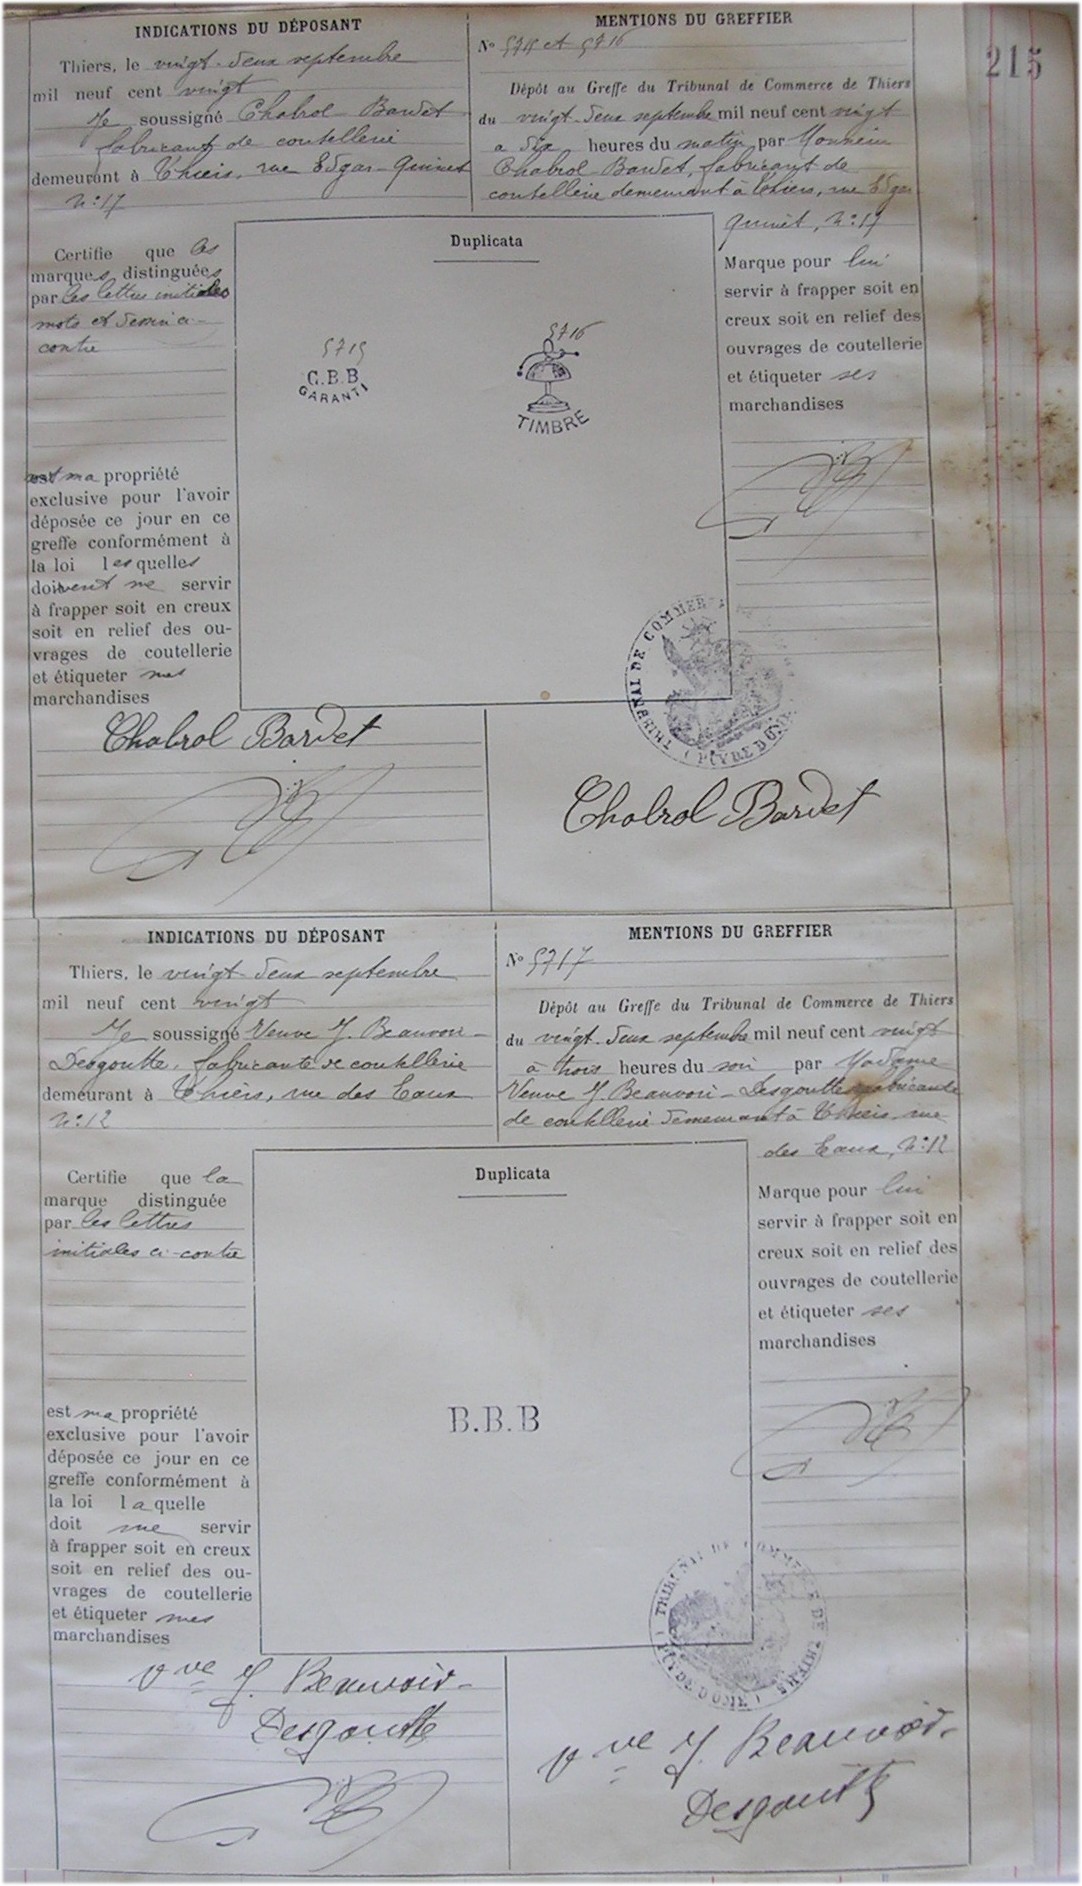 215
INDICATIONS DU DÉPOSANT
Thiers, le vingt-deux septembre
mil neuf cent vingt
Je soussigné Chabrol Bardet
fabricant de coutellerie
demeurant à Thiers, rue Edgar-Quinet
N: 17
Certifie que les
marques distinguées
par les lettres initiales
mots et dessin ci-
contre
ma propriété
exclusive pour l'avoir
déposée ce jour en ce
greffe conformément à
la loi lesquelles
doivent me servir
à frapper soit en creux
soit en relief des ou-
vrages de coutellerie
et étiqueter mes
marchandises
Chabrol Bardet
MENTIONS DU GREFFIER
No 5715 et 5716
Dépôt au Greffe du Tribunal de Commerce de Thiers
du vingt-deux septembre mil neuf cent vingt
a dix heures du matin par Monsieur
Chabrol-Bardet, fabricant de
coutellerie demeurant à Thiers, rue Edgar
Quinet, N: 17
Duplicata
5715
C.B.B
GARANTI
5716
TIMBRE
Marque pour lui
servir à frapper soit en
creux soit en relief des
ouvrages de coutellerie
et étiqueter ses
marchandises
TRIBUNAL DE COMMERCE
(PUY DE DÔME)
Chabrol Bardet
INDICATIONS DU DÉPOSANT
Thiers, le vingt-deux septembre
mil neuf cent vingt
Je soussigné Veuve J. Beauvoir-
Desgoutte, fabricante de coutellerie
demeurant à Thiers, rue des Eaux
N: 12
Certifie que la
marque distinguée
par les lettres
initiales ci-contre
est ma propriété
exclusive pour l'avoir
déposée ce jour en ce
greffe conformément à
la loi laquelle
doit me servir
à frapper soit en creux
soit en relief des ou-
vrages de coutellerie
et étiqueter mes
marchandises
Vve J. Beauvoir-
Desgoutte
MENTIONS DU GREFFIER
No 5717
Dépôt au Greffe du Tribunal de Commerce de Thiers
du vingt-deux septembre mil neuf cent vingt
à trois heures du soir par Madame
Veuve J. Beauvoir-Desgoutte fabricante
de coutellerie demeurant à Thiers, rue
des Eaux, N: 12
Duplicata
B.B.B
Marque pour lui
servir à frapper soit en
creux soit en relief des
ouvrages de coutellerie
et étiqueter ses
marchandises
TRIBUNAL DE COMMERCE DE THIERS
(PUY DE DOME)
Vve J. Beauvoir-
Desgoutte